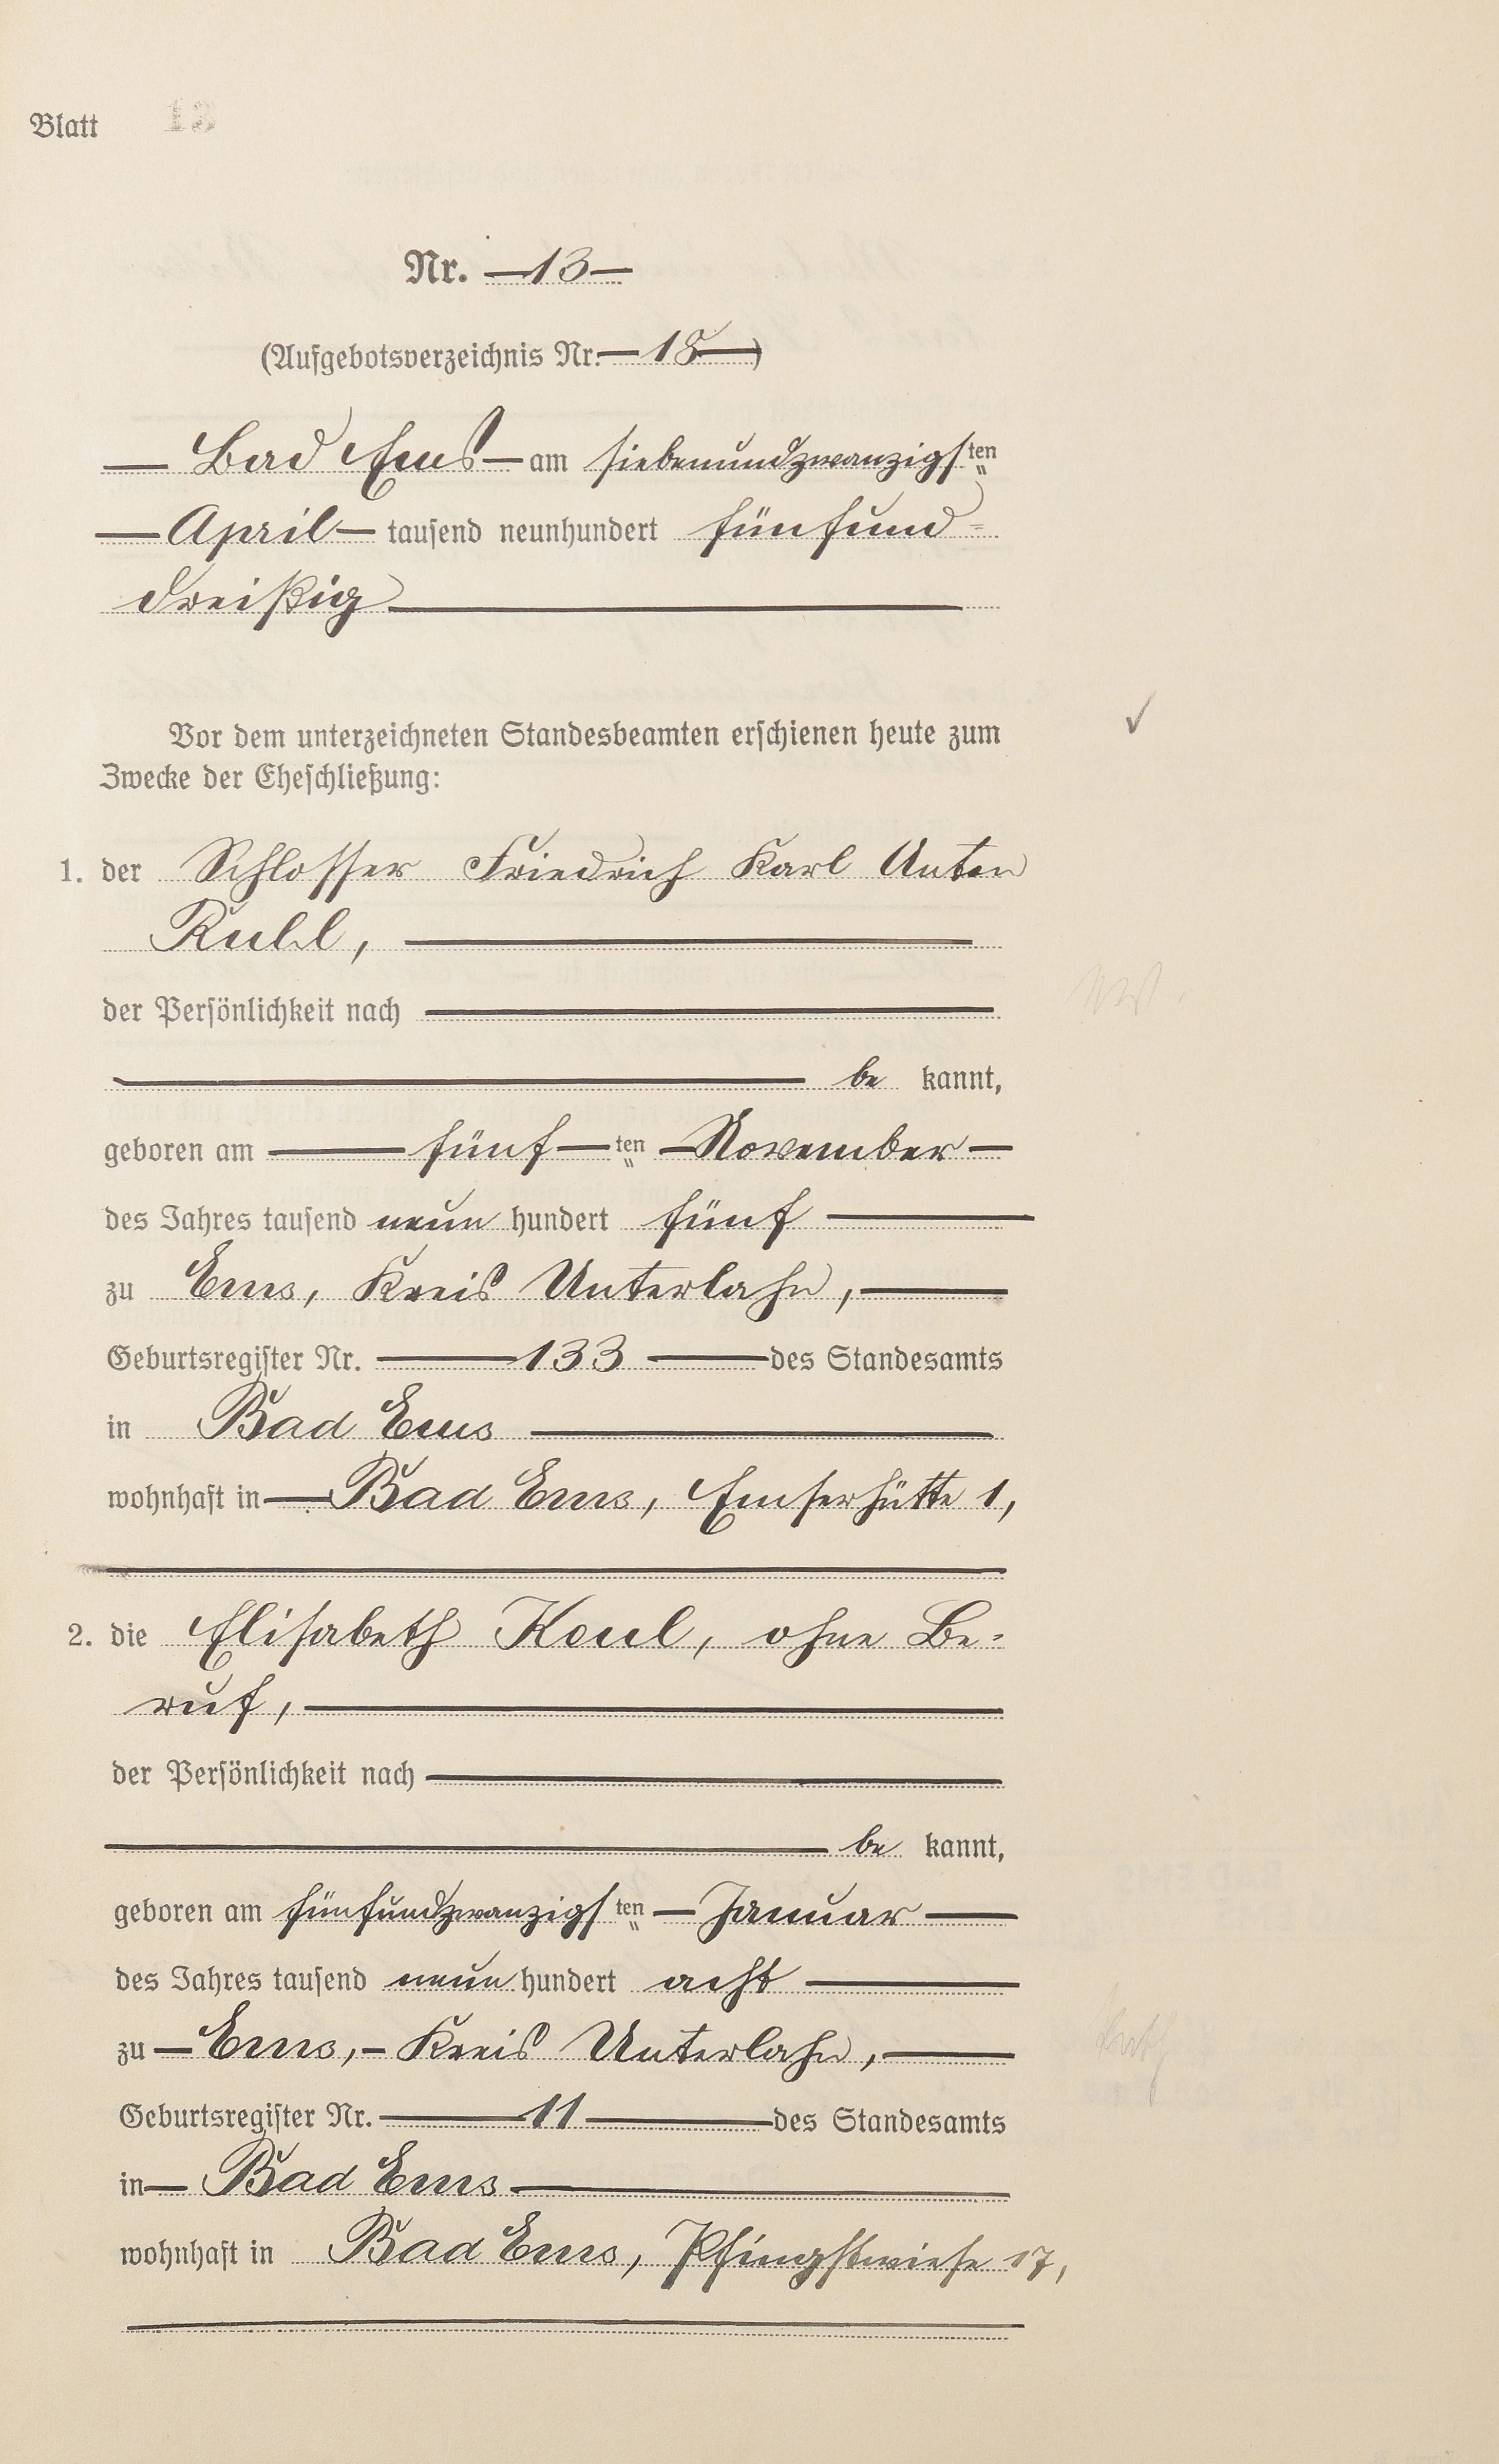 Blatt 13
Nr. 13
(Aufgebotsverzeichnis Nr. 18)
Bad Ems am siebenundzwanzigsten
April tausend neunhundert fünfund=
dreißig
Vor dem unterzeichneten Standesbeamten erschienen heute zum
Zwecke der Eheschließung:
1. der Schlosser Friedrich Karl Anton
Ruhl,
der Persönlichkeit nach
be kannt,
geboren am fünf ten November
des Jahres tausend neun hundert fünf
zu Ems, Kreis Unterlahn,
Geburtsregister Nr. 133 des Standesamts
in Bad Ems
wohnhaft in Bad Ems, Emserhütte 1,
2. die Elisabeth Keul, ohne Be-
ruf,
der Persönlichkeit nach
be kannt,
geboren am fünfundzwanzigsten Januar
des Jahres tausend neun hundert acht
zu Ems, Kreis Unterlahn,
Geburtsregister Nr. 11 des Standesamts
in Bad Ems
wohnhaft in Bad Ems, Pfingstwiese 17,